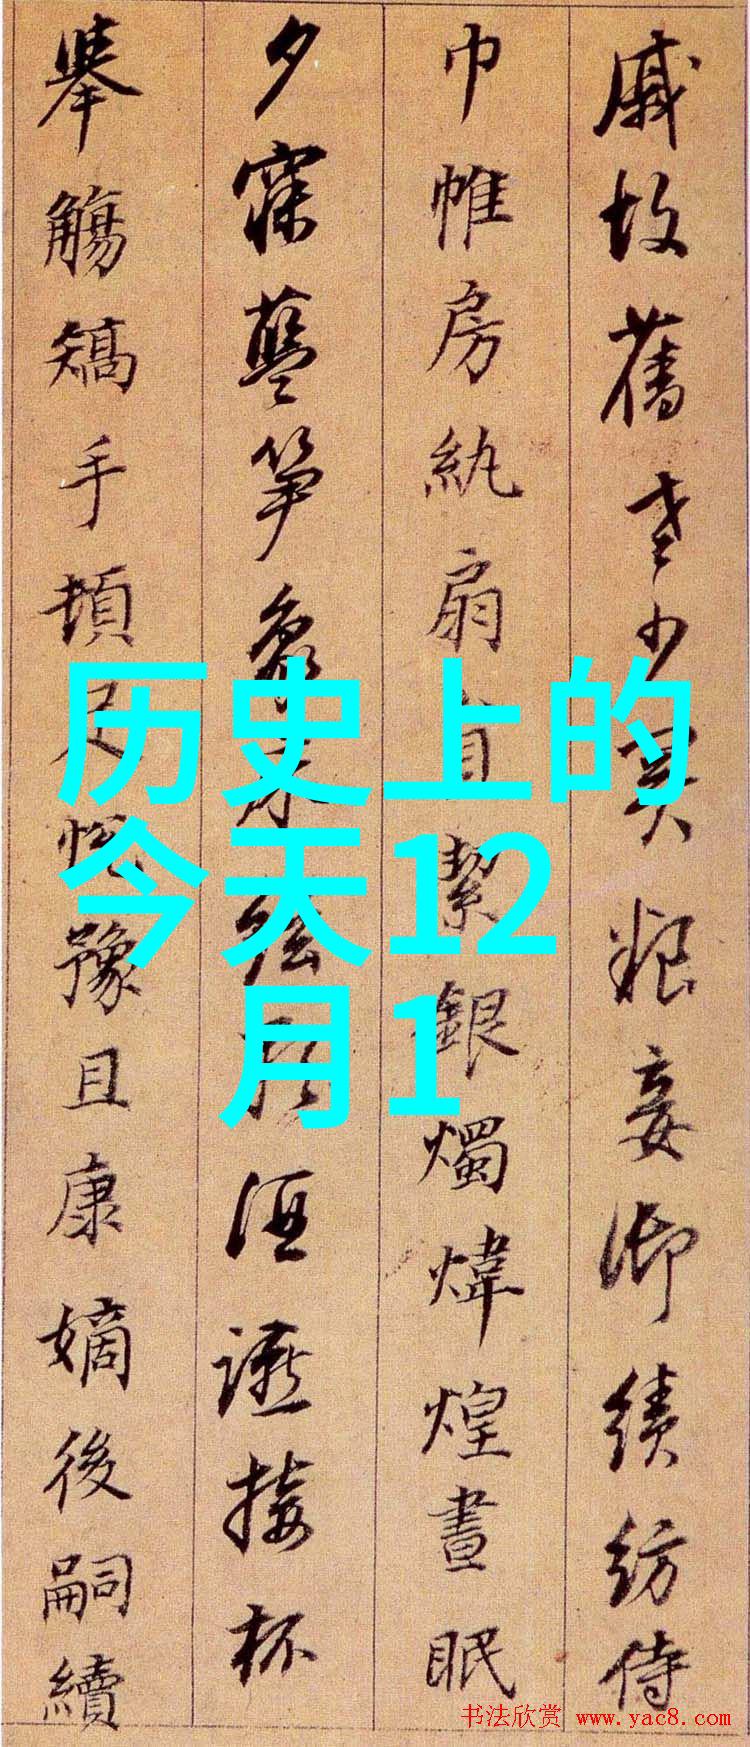 戚故舊老少異粮妾御績紡侍
巾帷房紈扇員絜銀燭煒煌晝眠
夕寐藍笋象床絃歌酒讌接杯
舉觴矯手頓足悅豫且康嫡後嗣續
历史上的
今天12
月1
书法欣赏 www.yac8.com